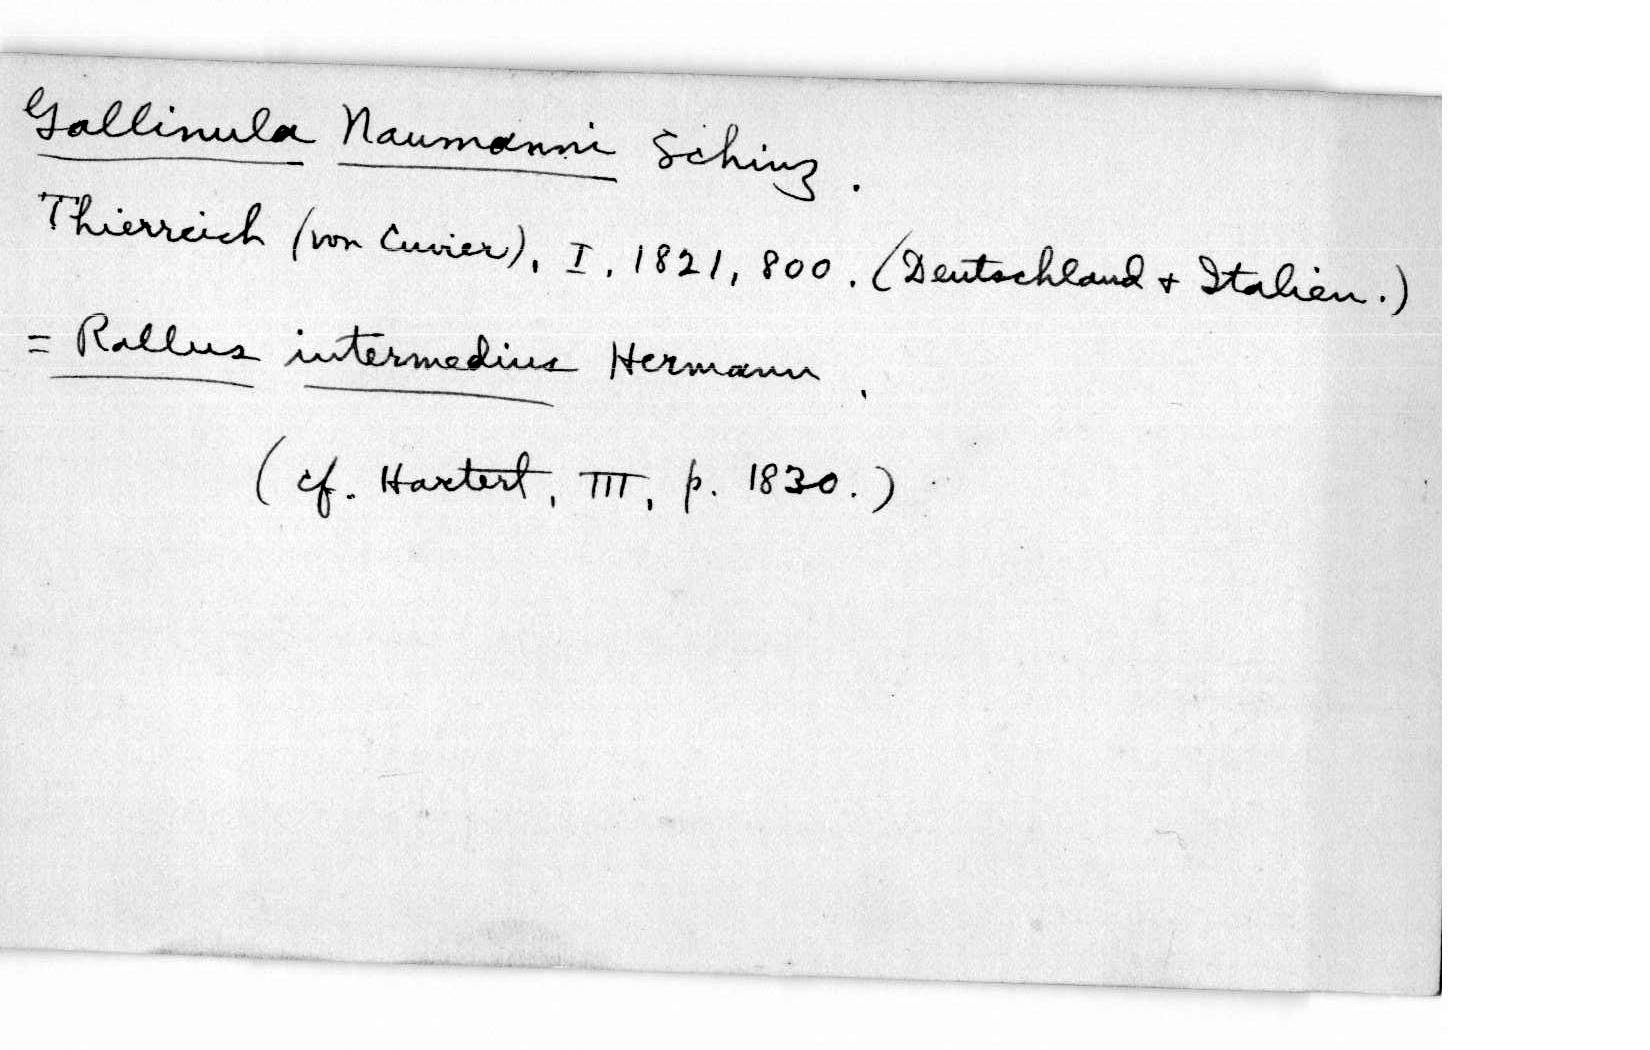 Gallinula Naumanni Schinz.
Thierreich (von Cuvier), I, 1821, 800. (Deutschland + Italien.)
= Rallus intermedius Hermann.
(cf. Hartert, III, p. 1830.)